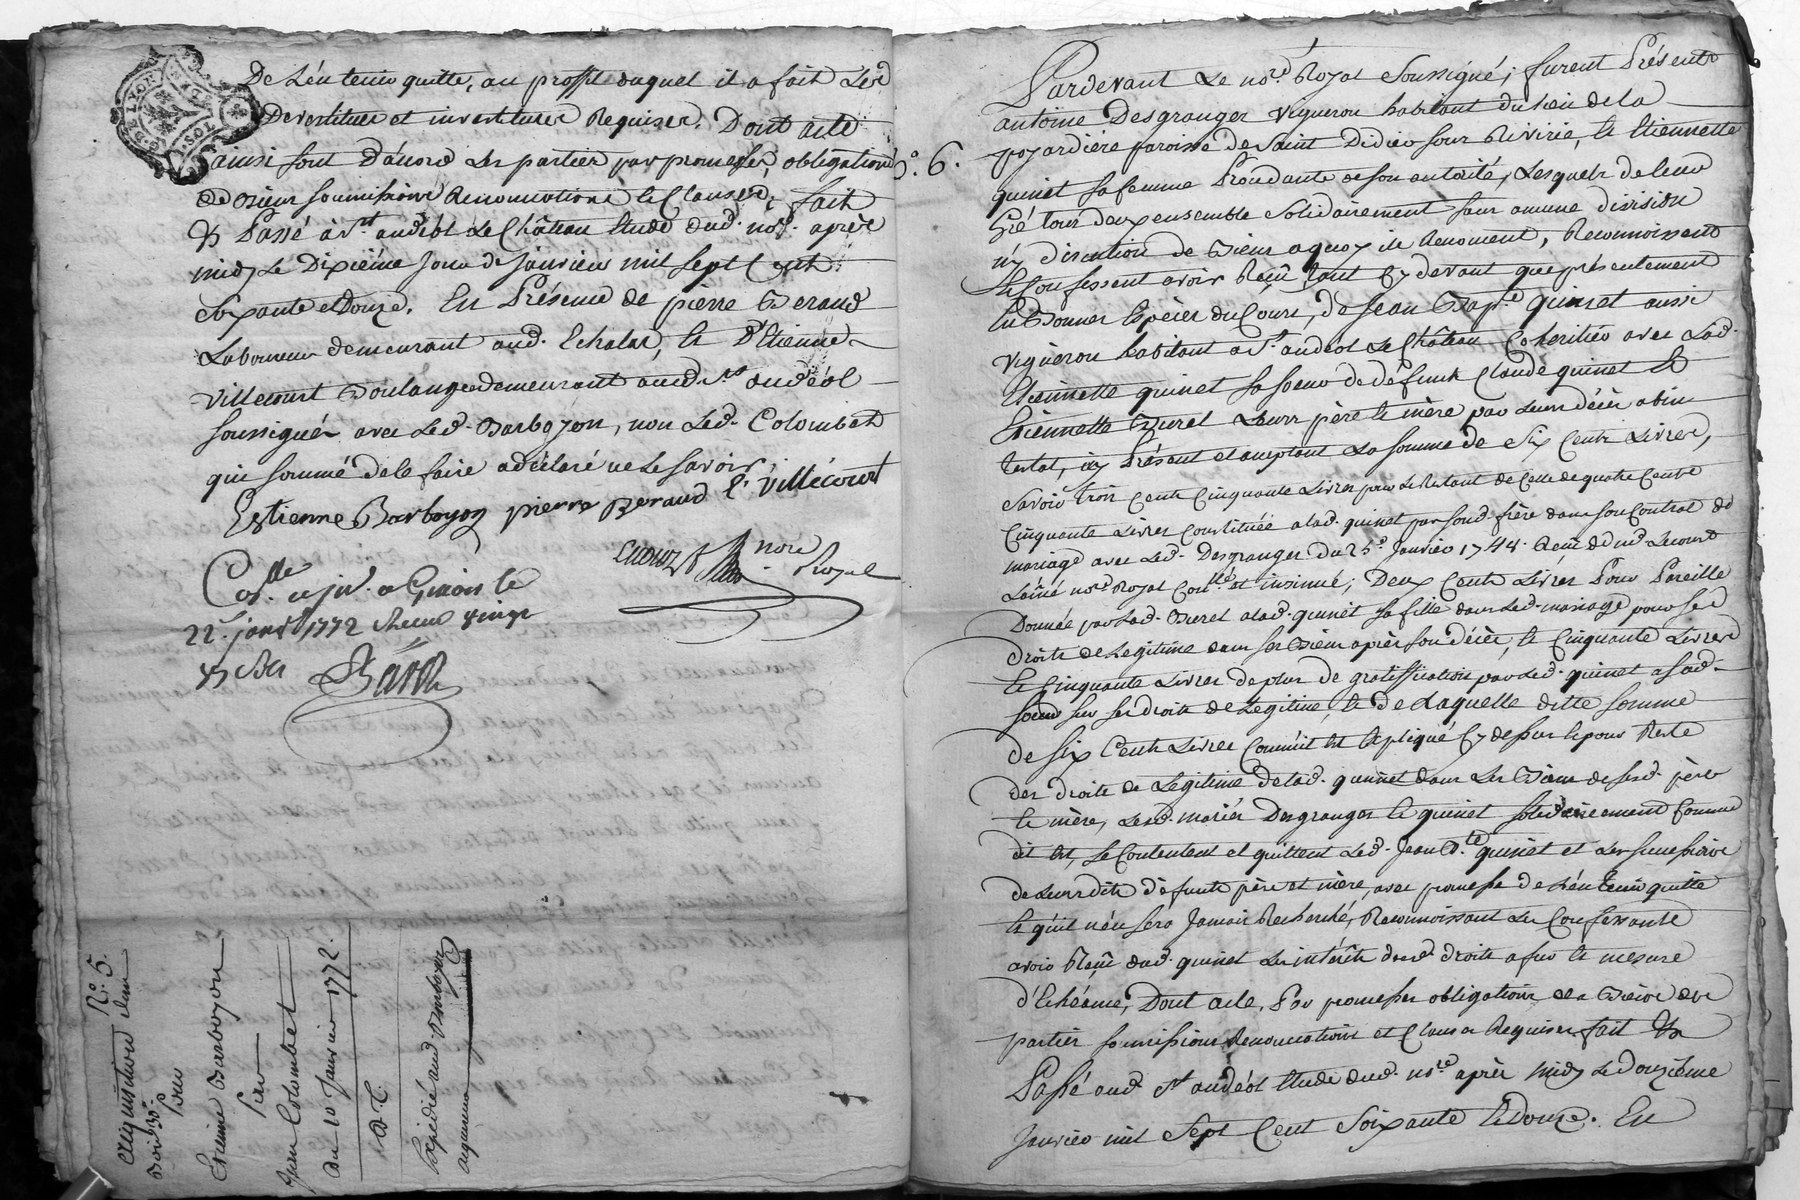 De l'en tenir quitte, au proffit duquel il a fait Les
Devestitures et investitures Requises. Dont acte
ainsi sont d'acord Les parties par promesses, obligations
de Biens soumissions Renonciations & Clauses; fait
& Passé à St. andéol Le Château Etude dud. nore. après
midy Le Dixième Jour de Janvier mil sept Cent
soixante et Douze. En Présence de pierre Beraud
Laboureur demeurant aud. Echalas, & Sr. Etienne
Villecourt Boulanger demeurant aud. St. andéol
soussignés avec Led. Barboyon, non Led. Colombet
qui sommé de le faire a déclaré ne Le savoir,
Estienne Barboyon pierre Beraud E. Villécourt
nore Royal
Con.lle à Givors le
22e. janv 1772 Reçu vingt
Barboyon
N.º 5.
acquisition
Pour
Etienne Barboyon
Jean Colombet
Du 10 Janvier 1772.
Expédié aud. Barboyon
acquereur
N.º 6.
Pardevant Le nore. Royal Soussigné; furent Présents
antoine Desgranges Vigneron habitant du lieu de la
poyardière paroisse de Saint Didier sous Riviria, & Etiennette
quinet sa femme Procédante de son autorité, Lesquels de leur
Gré tous deux ensemble Solidairement sans aucune division
ny discution de Biens a quoy ils Renoncent, Reconnoissent
& Confessent avoir Reçû tant Cy devant que présentement
En Bonnes Espèces du Cours, de Jean Bapt.e quinet aussi
Vigneron habitant a St. andéol Le Château Cohéritier avec Lad.
Etiennette quinet sa soeur de défunts Claude quinet &
Etiennette Buret Leurs père & mère par Leurs décès abin-
testat, icy Présent et acceptant La somme de Six Cents Livres,
Savoir trois Cents Cinquante Livres pour Le Restant de Celle de quatre Cents
Cinquante Livres Constituée a lad. quinet par sond. frère dans son Contrat de
mariage avec Led. Desgranges du 25e. Janvier 1748. Reçu
L'ainé nore. Royal Con.llé et insinué; Deux Cents Livres Pour Pareille
Donnée par Lad. Buret a lad. quinet sa fille dans Led. mariage pour Ses
droits de Legitime dans ses Biens après son décès, & Cinquante Livres
& Cinquante Livres de plus de gratiffication par Led. quinet a sad.
soeur sur ses droits de Legitime, & de Laquelle ditte somme
de Six Cents Livres Comme il Est Expliqué Cy dessus & pour Reste
des droits de Legitime de lad. quinet dans Les Biens de sesd. père
& mère, Lesd. mariés Desgranges & quinet solidairement Comme
dit Est, se Contentent et quittent Led. Jean B.te quinet et Les successions
de Leursdits défunts père et mère, avec promesse de L'en tenir quitte
& qu'il n'en sera Jamais Recherché, Reconnoissant Les Confessants
avoir Reçû dud. quinet Les intérêts desd. droits a fur & mesure
d'Echéance, Dont acte, Par promesses obligations de Biens des
parties soumissions Renonciations et Clauses Requises fait &
Passé aud. St. andéol Etude dud. nore après midy Le Douzième
Janvier mil Sept Cent Soixante & Douze. En